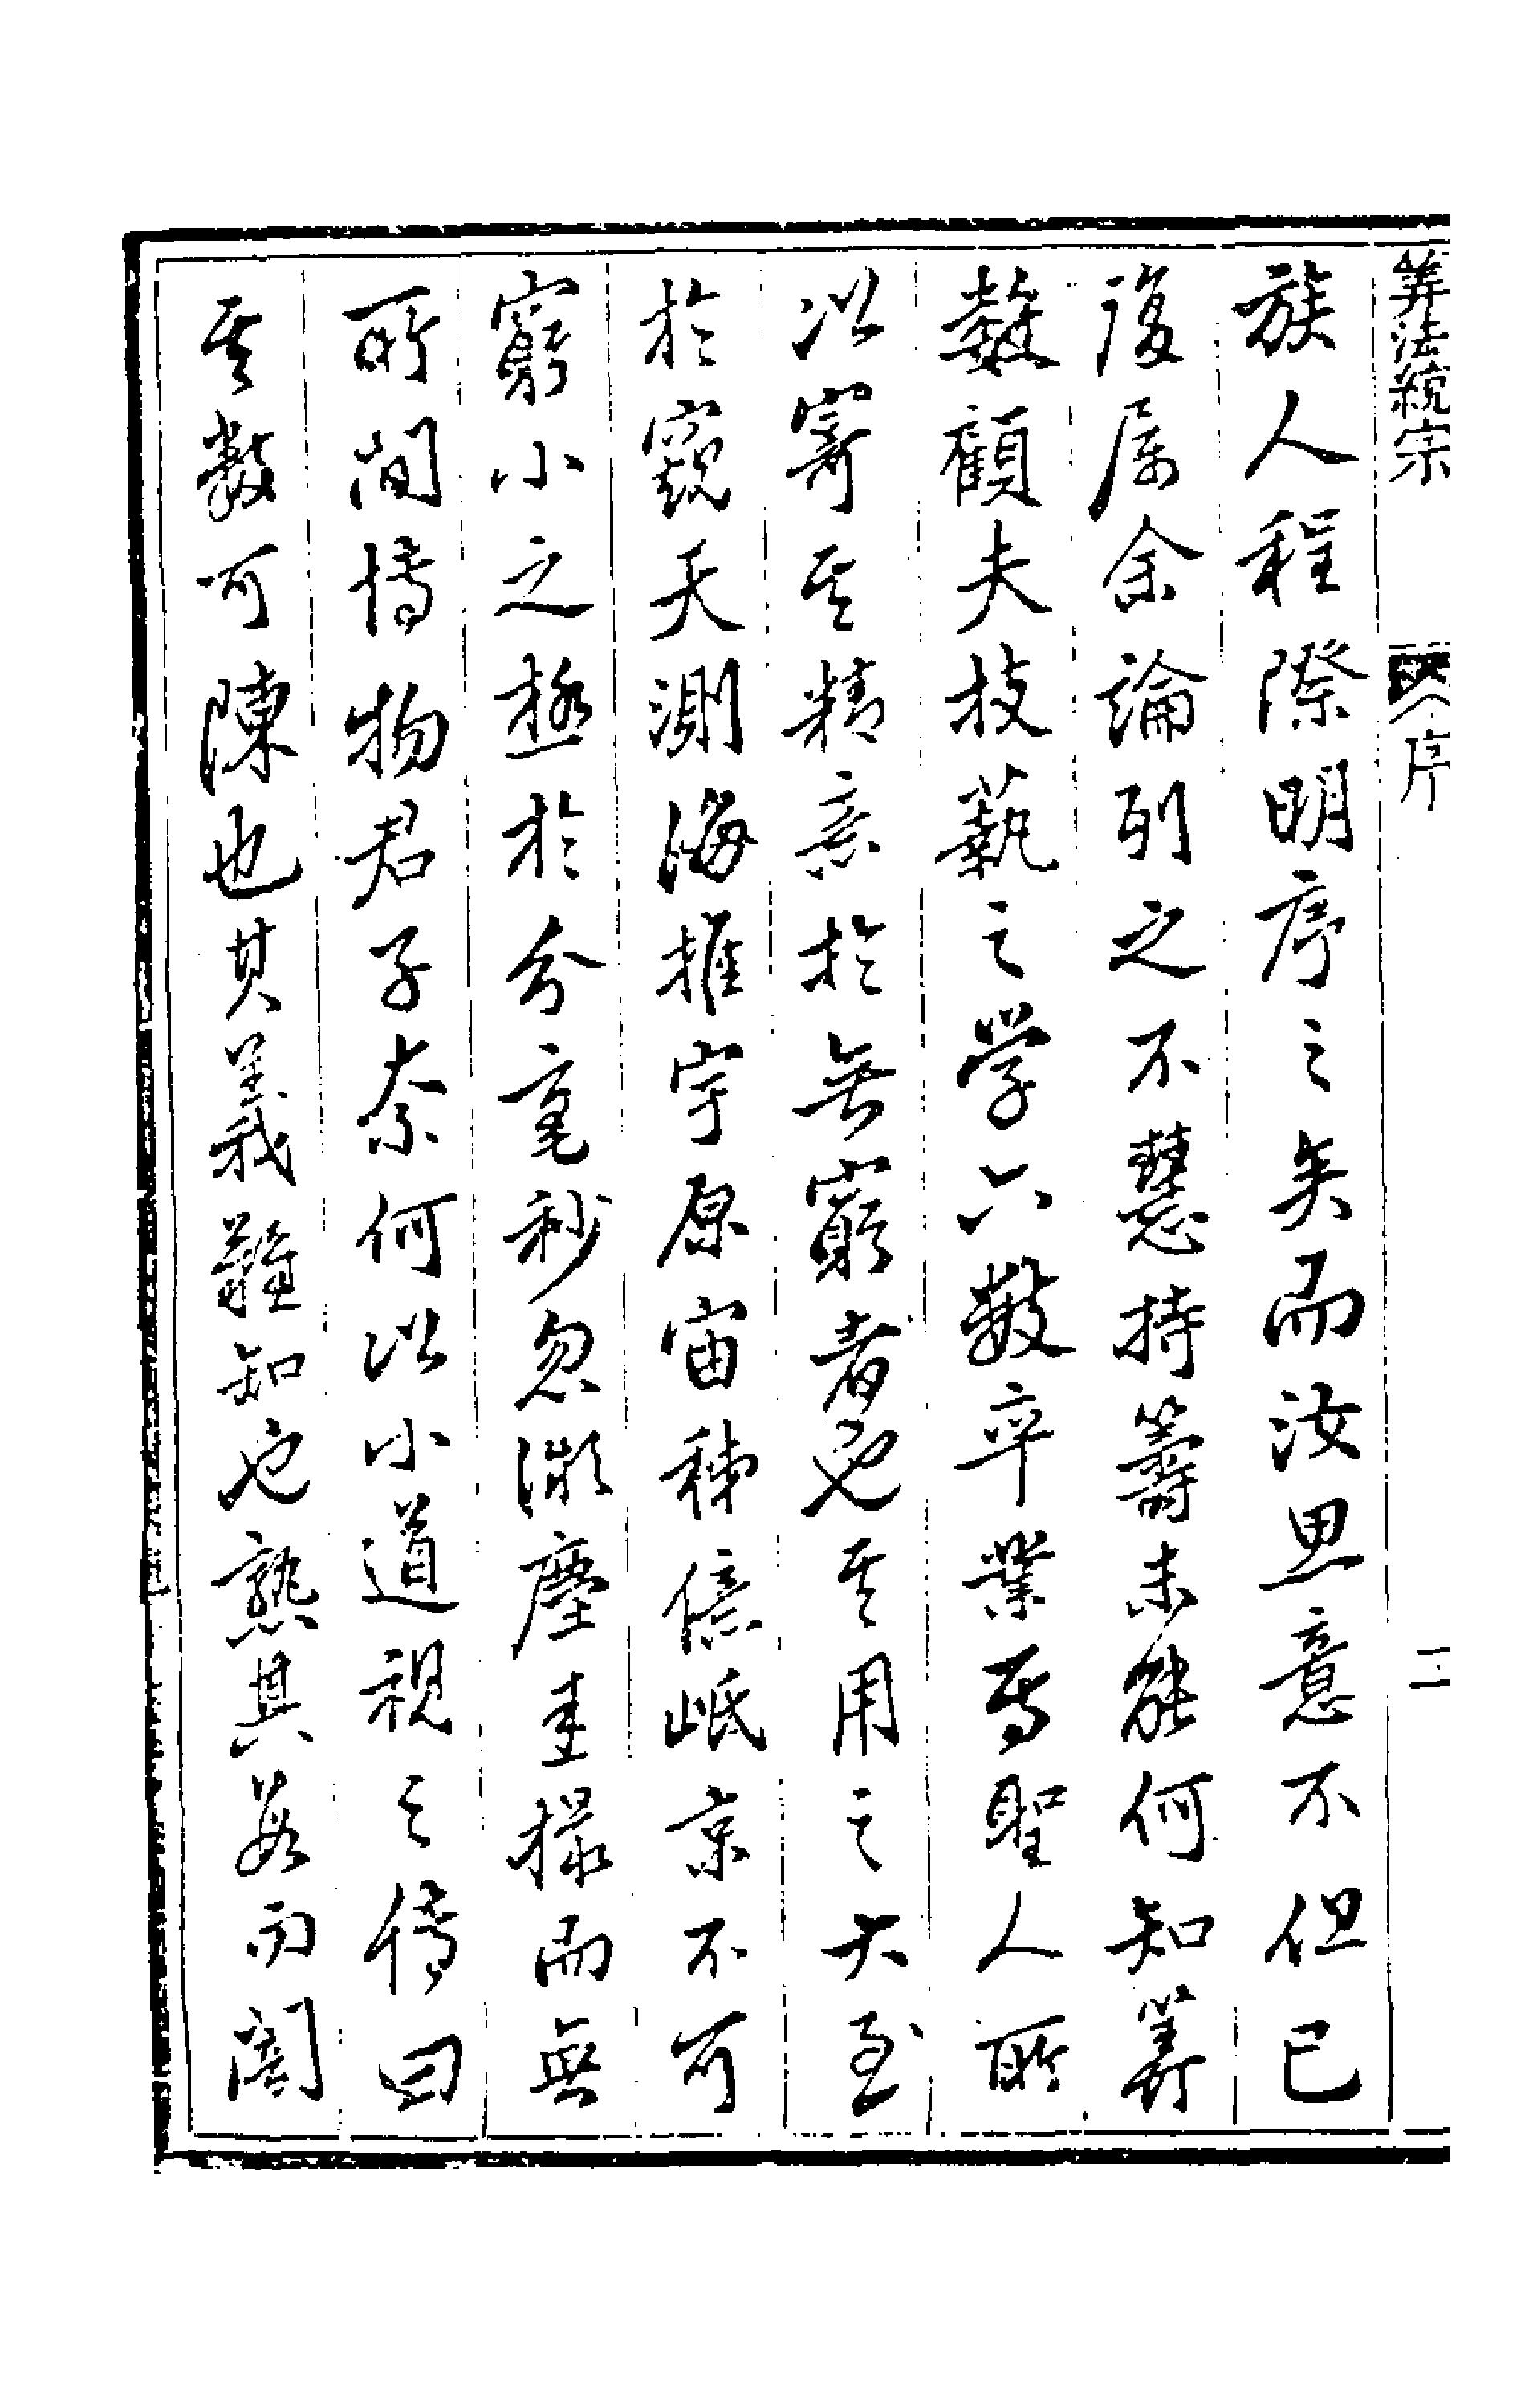 筭法統宗 序 二
族人程際明序之矣而汝思意不但已
復属余論列之不慧持籌未能何知筭
數顧夫技藝之学六數卒業焉聖人所
以寄其精意於無窮者也其用之大至
於窺天測海推宇原宙秭億岻京不可
窮小之極於分毫秒忽微塵圭撮而無
所間博物君子奈何以小道視之傳曰
其數可陳也其義難知也熟其　而闇